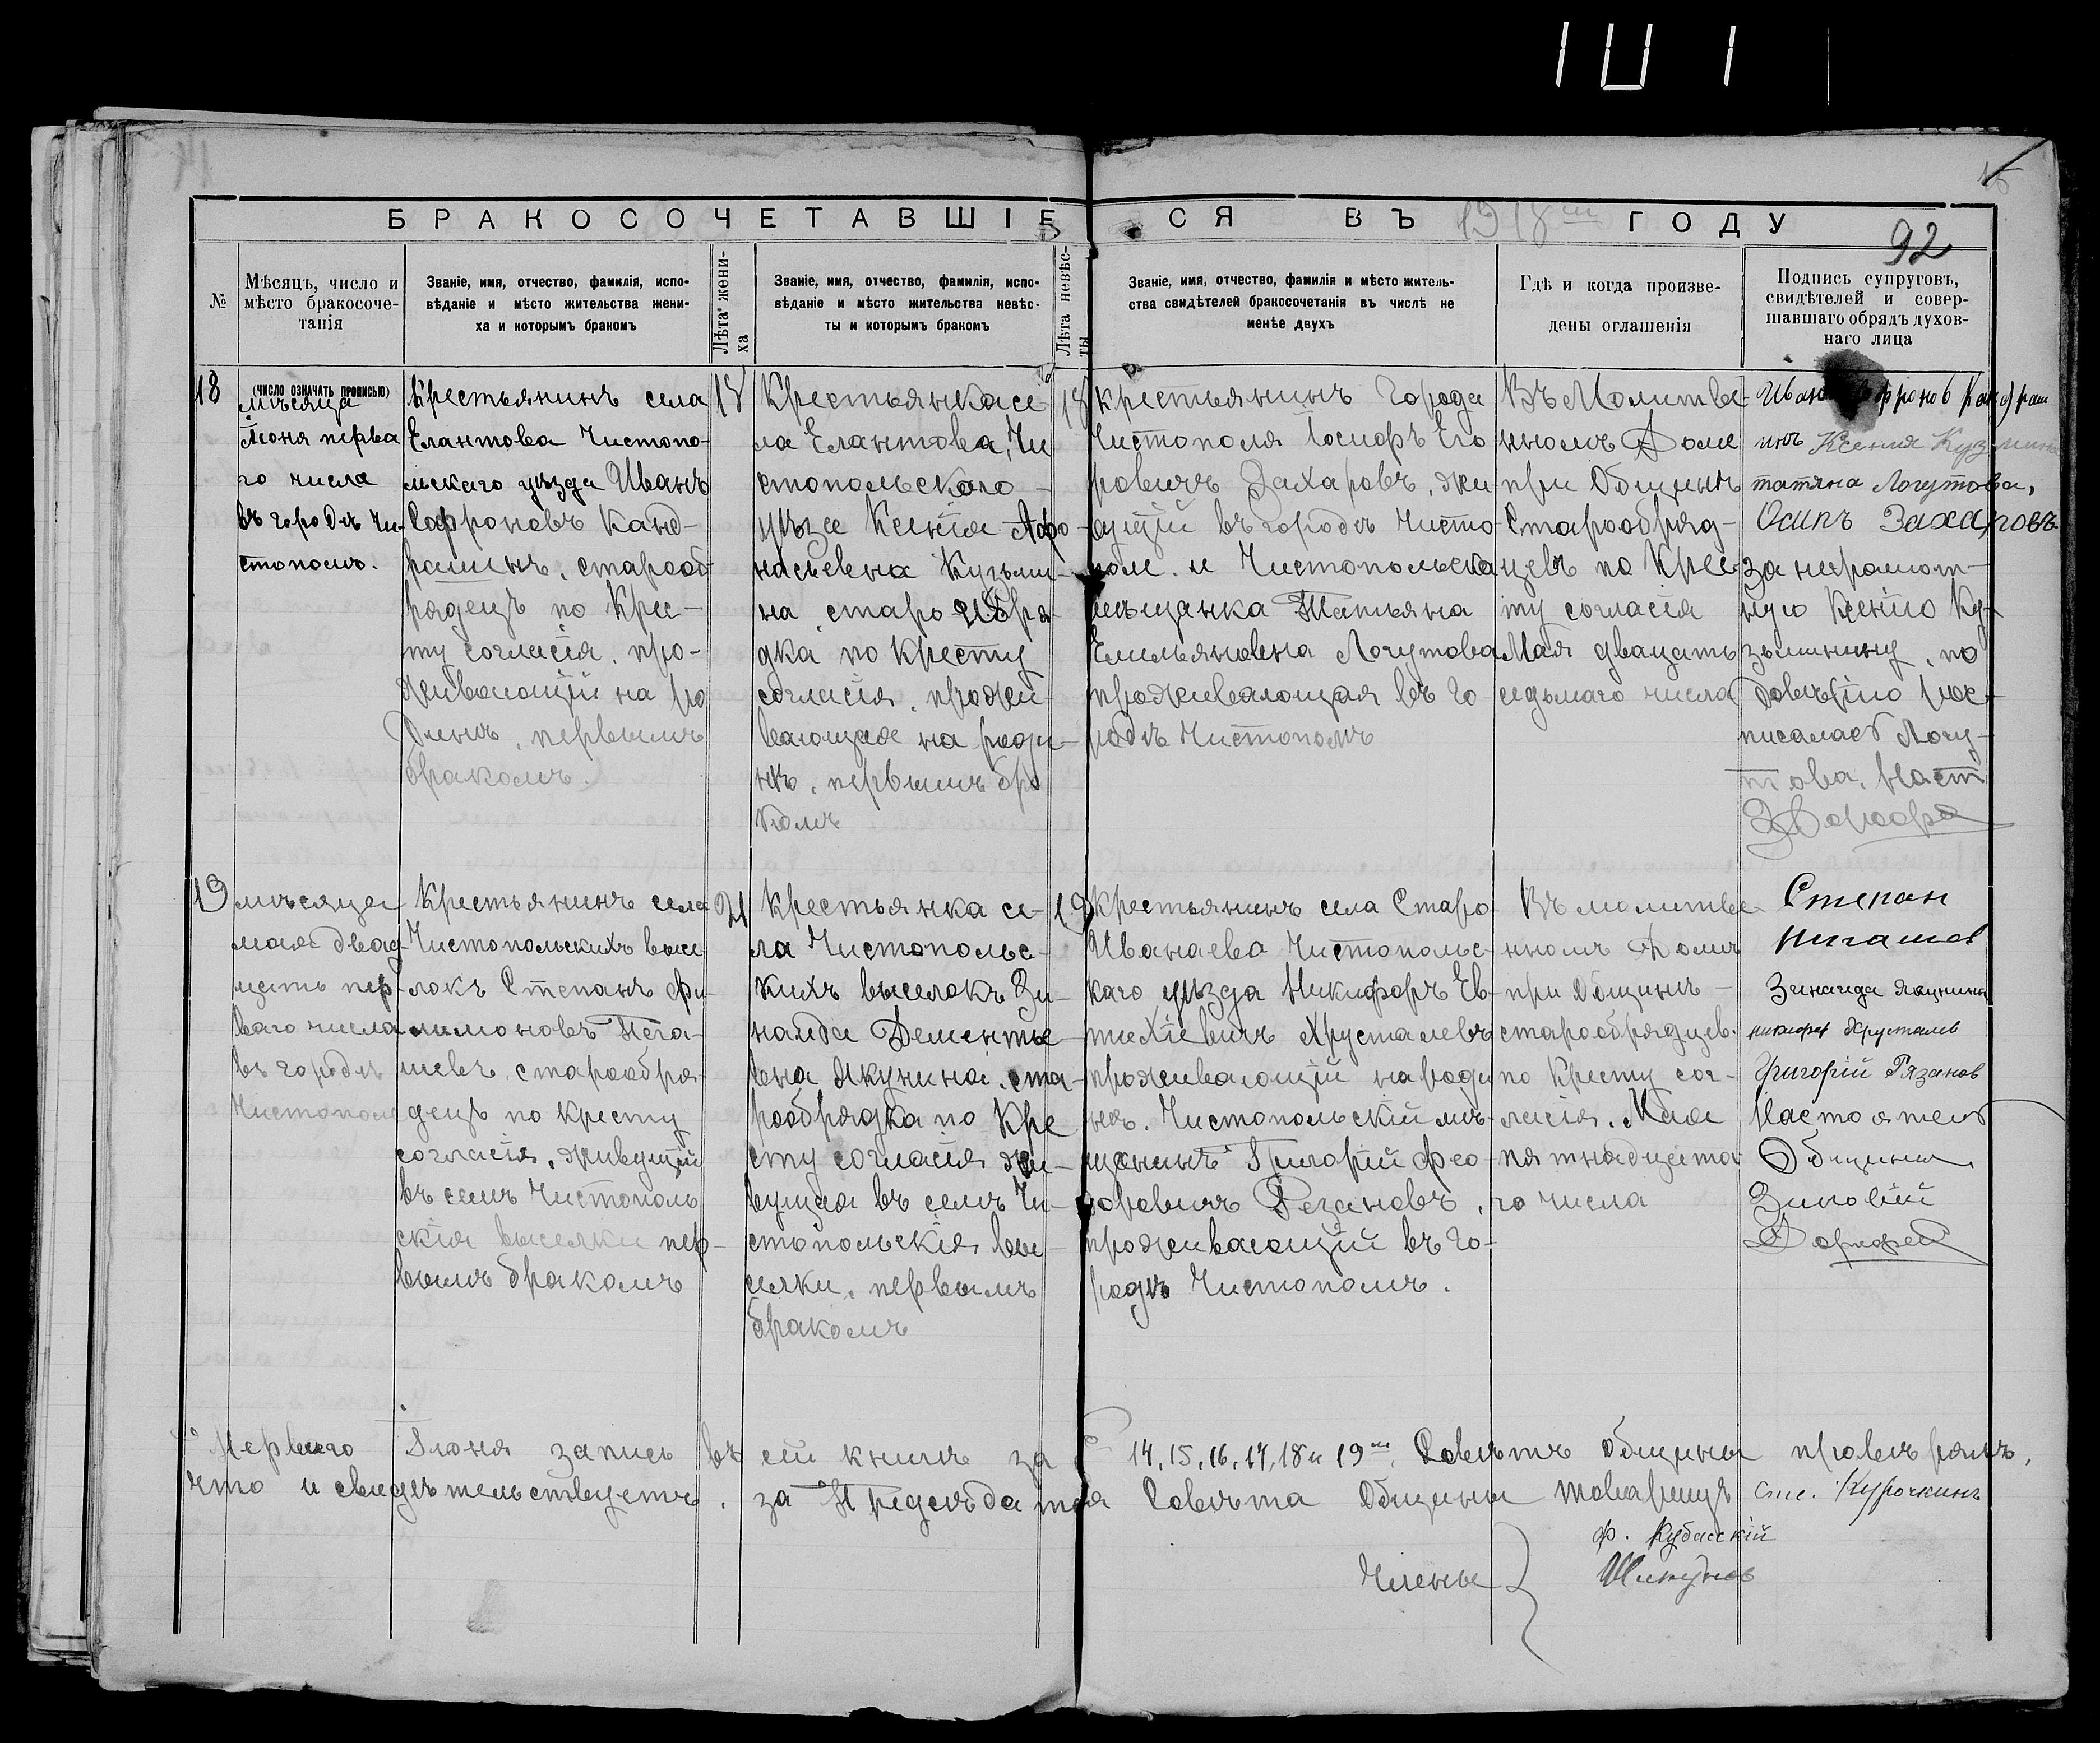 101
БРАКОСОЧЕТАВШІЕСЯ ВЪ 1918 ГОДУ
92
№
Мѣсяцъ, число и
мѣсто бракосоче-
танія
Званіе, имя, отчество, фамилія, испо-
вѣданіе и мѣсто жительства жени-
ха и которымъ бракомъ
Лѣта жени-
ха
Званіе, имя, отчество, фамилія, испо-
вѣданіе и мѣсто жительства невѣс-
ты и которымъ бракомъ
Лѣта невѣс-
ты
Званіе, имя, отчество, фамилія и мѣсто житель-
ства свидѣтелей бракосочетанія въ числѣ не
менѣе двухъ
Гдѣ и когда произве-
дены оглашенія
Подпись супруговъ,
свидѣтелей и совер-
шавшаго обрядъ духов-
наго лица
18
(число означать прописью)
мѣсяца
Іюня перва
го числа
въ городѣ Чи-
стополѣ.
Крестьянинъ села
Елантова Чистопо-
льскаго уѣзда Иванъ
Сафроновъ Канд-
рашинъ, старооб-
рядецъ по Крес-
ту согласія, про-
живающій на ро
динѣ, первымъ
бракомъ.
18
Крестьянка се
ла Елантова, Чи
стопольскаго
уѣзда Ксенія Афо-
насьевна Кузьми-
на, старообря-
дка по Кресту
согласія, прожи-
вающая на роди-
нѣ, первымъ бра
комъ
18
Крестьянинъ Города
Чистополя Іосифъ Его
ровичъ Захаровъ, жи
вущій въ городѣ Чисто-
полѣ. и Чистопольска
мѣщанка Татьяна
Емельяновна Логутова
проживающая въ го-
родѣ Чистополѣ
Въ Молитве-
нномъ Доме
при Общинѣ
Старообряд-
цевъ по Крес-
ту согласія
Мая двацать
седьмаго числа
Иванъ Сафронов Кандраш
инъ Ксения Кузмина
татяна Логутова,
Осипъ Захаровъ
за неграмот-
ную Ксенію Ку-
зьминину, по
довѣрію рос-
писалась Логу-
това. Наст
19
мѣсяца
мая двад-
цать пер-
ваго числа
въ городѣ
Чистополѣ
Крестьянинъ села
Чистопольскихъ высе
локъ Степанъ Фи-
лимоновъ Пега-
шевъ, старообря-
децъ по Кресту
согласія, живущій
въ селѣ Чистополь
скія выселки пер-
вымъ бракомъ
21
Крестьянка се-
ла Чистопольс-
кихъ выселокъ Зи-
наида Дементье
вна Якунина, ста-
рообрядка по Кре
сту согласія жи-
вущая въ селѣ Чи-
стопольскія вы-
селки, первымъ
бракомъ
19
Крестьянинъ села Старо
Иванаева Чистопольс-
каго уѣзда Никифоръ Ев-
тихіевичъ Хрусталевъ
проживающій на роди
нѣ. Чистопольскій мѣ-
щанинъ Григорій Фео-
доровичъ Резановъ,
проживающій въ го-
родѣ Чистополѣ.
Въ молитве
нномъ Домѣ
при Общинѣ
старообрядцев.
по Кресту сог-
ласія. Мая
пятнадцата
го числа
Степан
Пигашев
Зинаида Якунина
никифор Хрусталев
Григорій Рязанов
Настоятель
Общины
Зиновій
Перваго Іюня запись въ сей книгѣ за 14, 15, 16, 17, 18 и 19 Совѣтъ Общины провѣрялъ,
что и свидѣтельствуетъ. за Предсѣдателя Совѣта Общины товарищъ Курочкинъ
Ф. Кубасскій
Члены